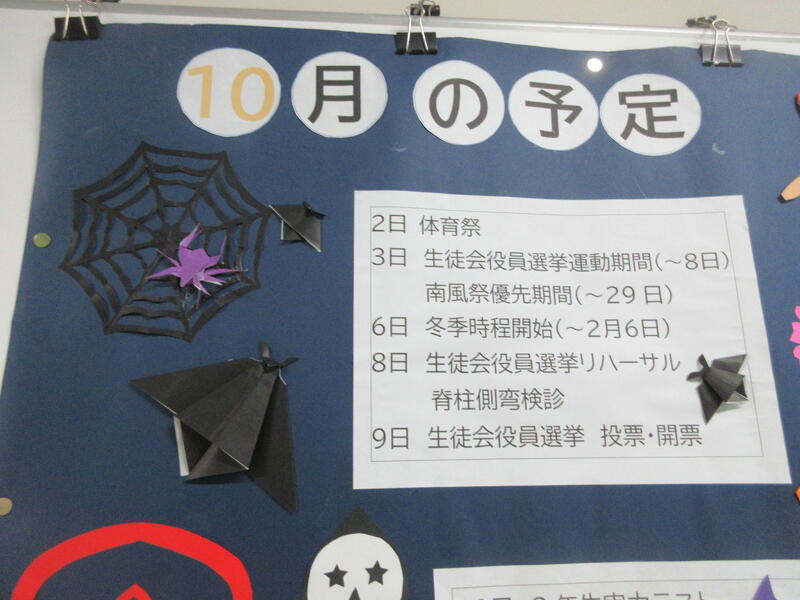 10月の予定
2日 体育祭
3日 生徒会役員選挙運動期間(～8日)
南風祭優先期間(～29日)
6日 冬季時程開始(～2月6日)
8日 生徒会役員選挙リハーサル
脊柱側弯検診
9日 生徒会役員選挙 投票・開票